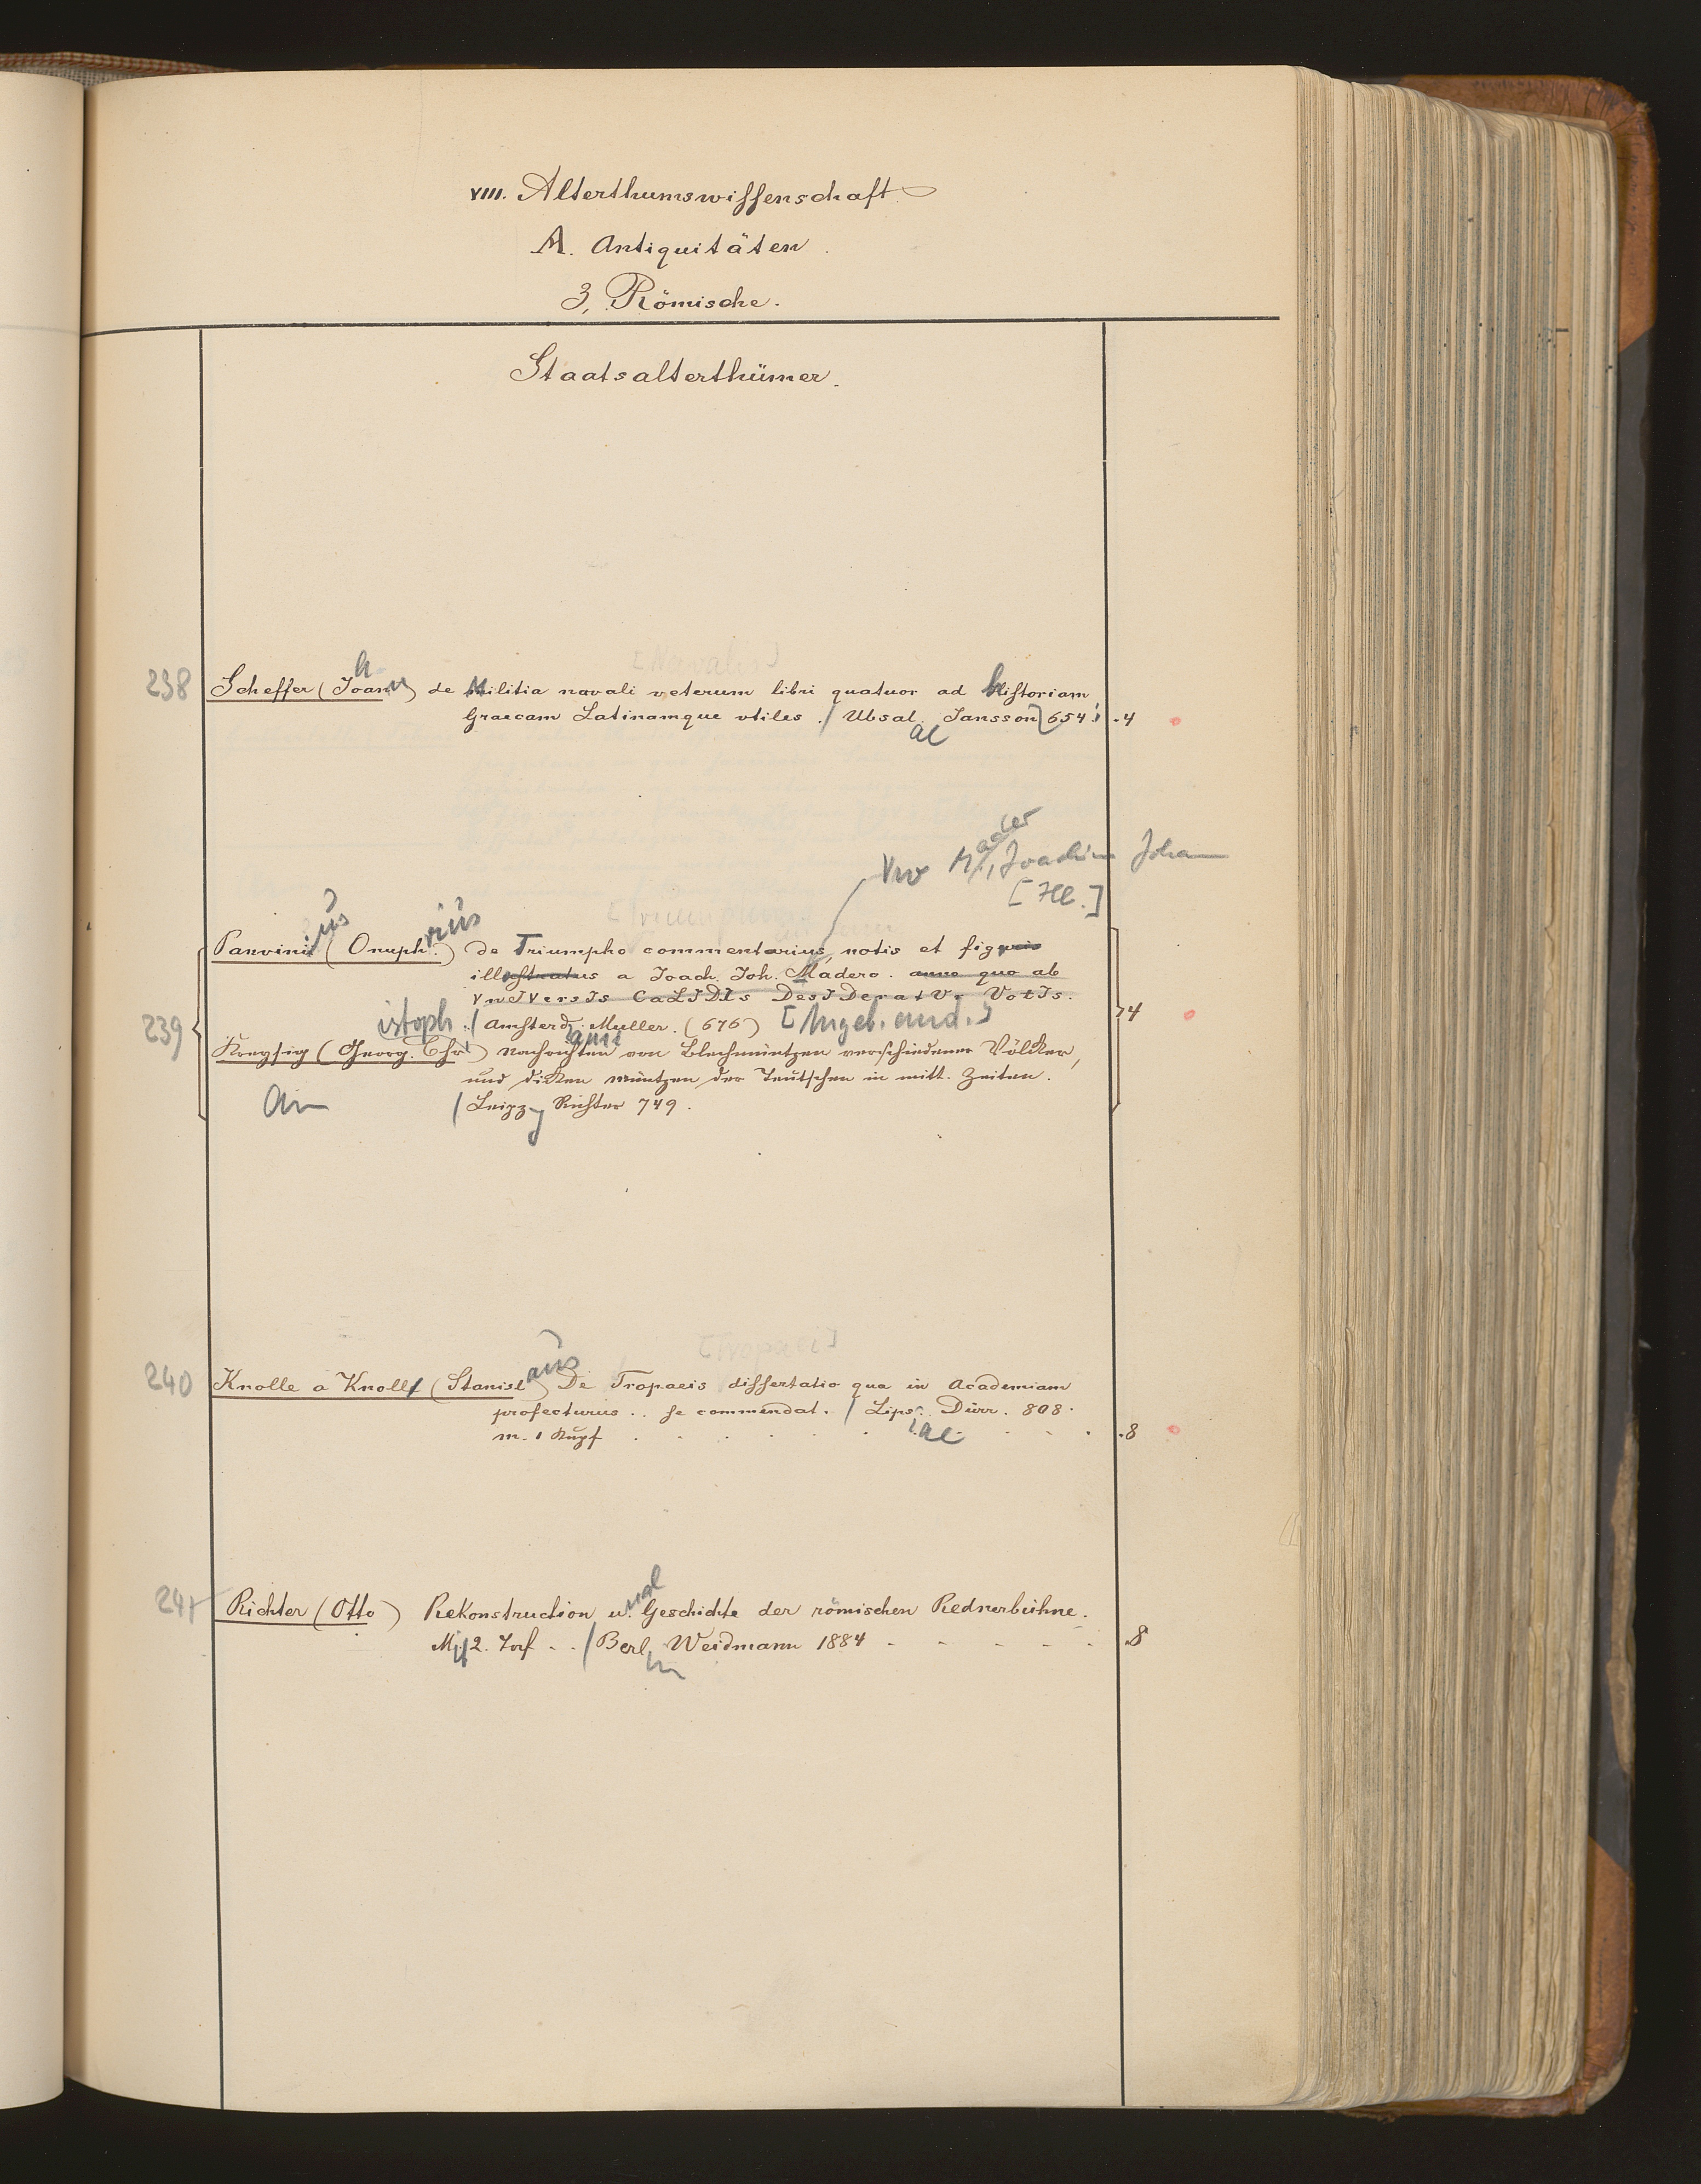 VIII. Alterthumswissenschaft
A. Antiquitäten.
3, Römische.
Staatsalterthümer.
[Navalis]
h
238 Scheffer (Joann) de Militia navali veterum libri quatuor ad historiam
Graecam Latinamque utiles. / Ubsal. Jansson 654. .4
ae
Mader, Joachim Johann
[Hg.]
us rius
Panvini (Onuph.) de Triumpho commentarius, notis et figuris
illustratus a Joach. Joh. Madero. anno quo ab
VnIVersIs CaLIDIs DesIDeratVr VotIs.
239 istoph / Amsterd. Muller. (676) [Angeb. und.] 4
ami
Kreysig (Georg. Chr.) Nachrichten von Blechmüntzen verschiedener Völcker,
und dicken müntzen der Teutschen in mitt. Zeiten.
An / Leipz. Richter 749.
[Tropaei]
aus
240 Knolle a Knoll (Stanisl.) De Tropaeis dissertatio qua in Academiam
profecturus .. se commendat. / Lips. Dürr. 808.
m. 1 Kupf iae .8
und
241 Richter (Otto) Rekonstruction u. Geschichte der römischen Rednerbühne.
Mit 2. Taf. . / Berl. Weidmann 1884 - - - - - .8
in